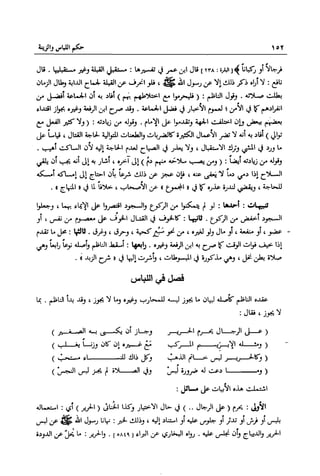 ١٥٢ حكم اللباس والزينة
فرجالاً أو ركباناً﴾ [البقرة: ٢٣٨] قال ابن عمر في تفسيرها : مستقبلي القبلة وغير مستقبليها . قال
نافع : لا أراه ذكر ذلك إلا عن رسول الله ﷺ ، فلو انحرف عن القبلة لجماح الدابة وطال الزمان
بطلت صلاته . وقول الناظم : ( فليحرموا مع اختلافهم بهم ) أفاد به أن الجماعة أفضل من
انفرادهم كما في الأمن ؛ لعموم الأخبار في فضل الجماعة . وقد صرح ابن الرفعة وغيره بجواز اقتداء
بعضهم ببعض وإن اختلفت الجهة وتقدموا على الإمام . وقوله من زيادته : ( ولا كثير الفعل مع
توالي ) أفاد به أنه لا تضر الأعمال الكثيرة كالضربات والطعنات المتوالية لحاجة القتال ، قياساً على
ما ورد في المشي وترك الاستقبال ، ولا يعذر في الصياح لعدم الحاجة إليه لأن الساكت أهيب .
وقوله من زيادته أيضاً : ( ومن يصب سلاحه منهم دم ) إلى آخره ، أشار به إلى أنه يجب أن يلقي
السلاح إذا دمي دماً لا يعفى عنه ، فإن عجز عن ذلك شرعاً بأن احتاج إلى إمساكه أمسكه
للحاجة ، ويقضي لندرة عذره كما في « المجموع » عن الأصحاب ، خلافاً لما في « المنهاج » .
تنبيهات : أحدها : لو لم يتمكنوا من الركوع والسجود اقتصروا على الإيماء بهما ، وجعلوا
السجود أخفض من الركوع . ثانيها : كالخوف في القتال الخوف على معصوم من نفس ، أو
عضو ، أو منفعة ، أو مال ولو لغيره ، من نحو سبع كحية ، وحرق ، وغرق . ثالثها : محل ما تقدم
إذا خيف فوات الوقت كما صرح به ابن الرفعة وغيره . رابعها : أسقط الناظم وأصله نوعاً رابعاً وهي
صلاة بطن نخل ، وهي مذكورة في المبسوطات ، وأشرت إليها في « شرح الزبد » .
فصل في اللباس
عقده الناظم كأصله لبيان ما يجوز لبسه للمحارب وغيره وما لا يجوز ، وقد بدأ الناظم . بما
لا يجوز ، فقال :
( على الرجال يحرم الحرير وجاز أن يكسى به الصغير )
( ومثله الإبريسم المركب مع غيره إن كان وزناً يغلب )
( وكالحرير لبس خاتم الذهب وكل ذلك للنساء مستحب )
( وما دعت له ضرورة لبس وفي الصلاة لم يجز لبس النجس )
اشتملت هذه الأبيات على مسائل :
الأولى : يحرم ( على الرجال .. ) في حال الاختيار وكذا الخناثى ( الحرير ) أي : استعماله
بلبس أو فرش أو تدثر أو جلوس عليه أو استناد إليه ، وذلك لخبر : نهانا رسول الله ﷺ عن لبس
الحرير والديباج وأن نجلس عليه . رواه البخاري عن البراء [٥٨٤٩] . والحرير : ما يحل عن الدودة